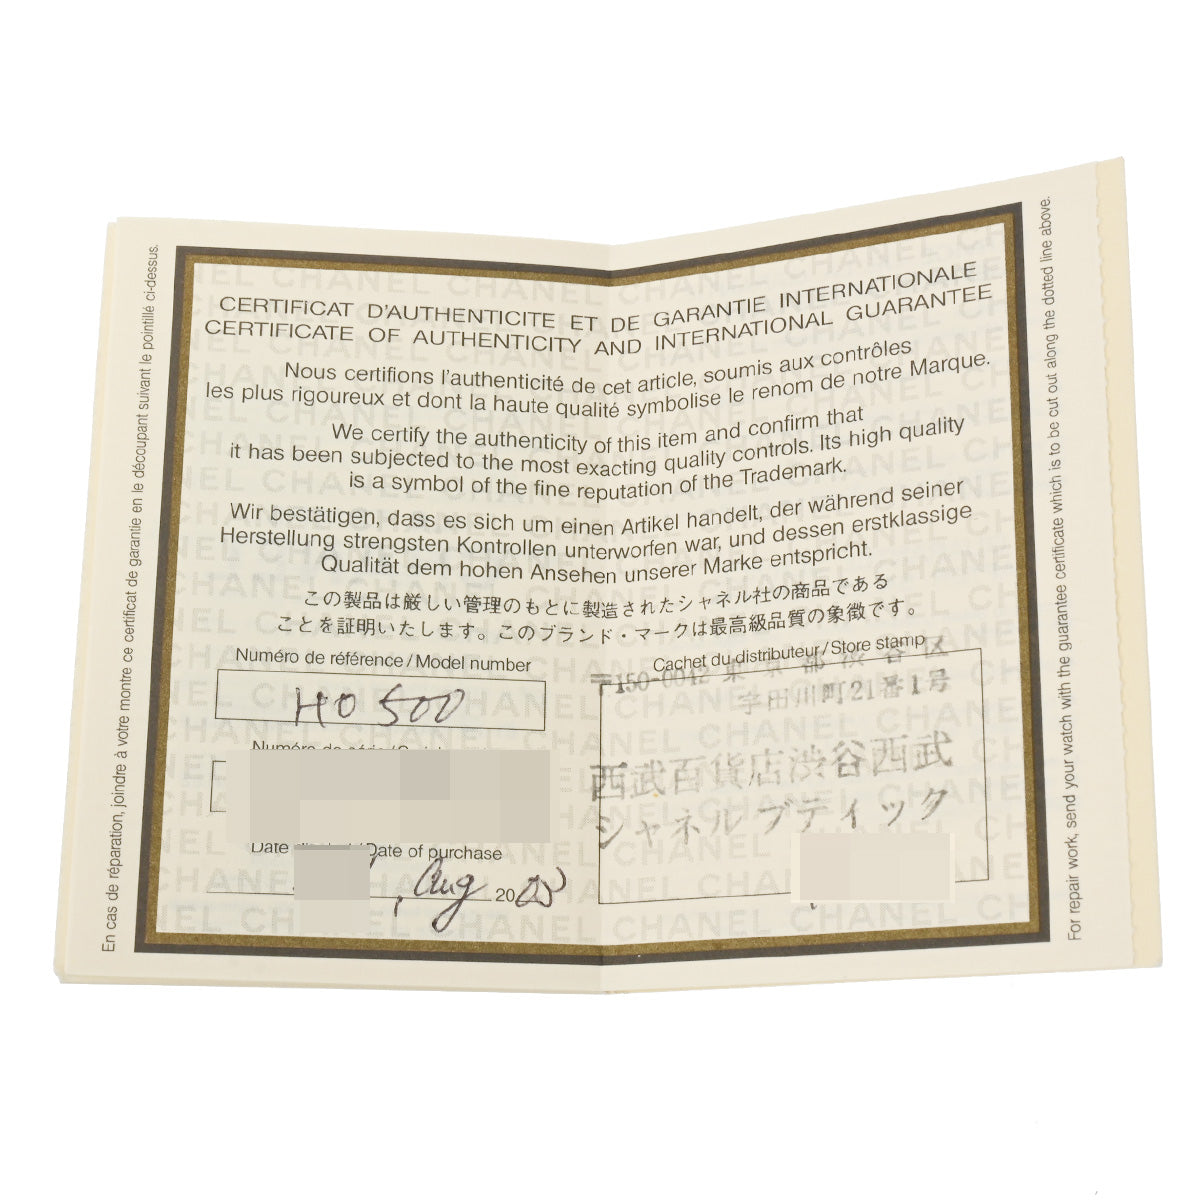 CERTIFICAT D'AUTHENTICITE ET DE GARANTIE INTERNATIONALE
CERTIFICATE OF AUTHENTICITY AND INTERNATIONAL GUARANTEE
Nous certifions l'authenticité de cet article, soumis aux contrôles
les plus rigoureux et dont la haute qualité symbolise le renom de notre Marque.
We certify the authenticity of this item and confirm that
it has been subjected to the most exacting quality controls. Its high quality
is a symbol of the fine reputation of the Trademark.
Wir bestätigen, dass es sich um einen Artikel handelt, der während seiner
Herstellung strengsten Kontrollen unterworfen war, und dessen erstklassige
Qualität dem hohen Ansehen unserer Marke entspricht.
この製品は厳しい管理のもとに製造されたシャネル社の商品である
ことを証明いたします。このブランド・マークは最高級品質の象徴です。
Numéro de référence / Model number
H0 500
Numéro de série
Date
Date of purchase
, Aug 20
Cachet du distributeur / Store stamp
〒150-0042 東京都渋谷区
宇田川町21番1号
西武百貨店渋谷西武
シャネルブティック
En cas de réparation, joindre à votre montre ce certificat de garantie en le découpant suivant le pointillé ci-dessus.
For repair work, send your watch with the guarantee certificate which is to be cut out along the dotted line above.
CHANEL